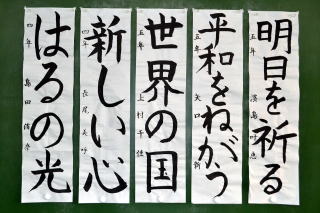 明日を祈る
五年
平和をねがう
五年 矢口
世界の国
五年 上村千佳
新しい心
四年 長尾美呼
はるの光
四年 島田